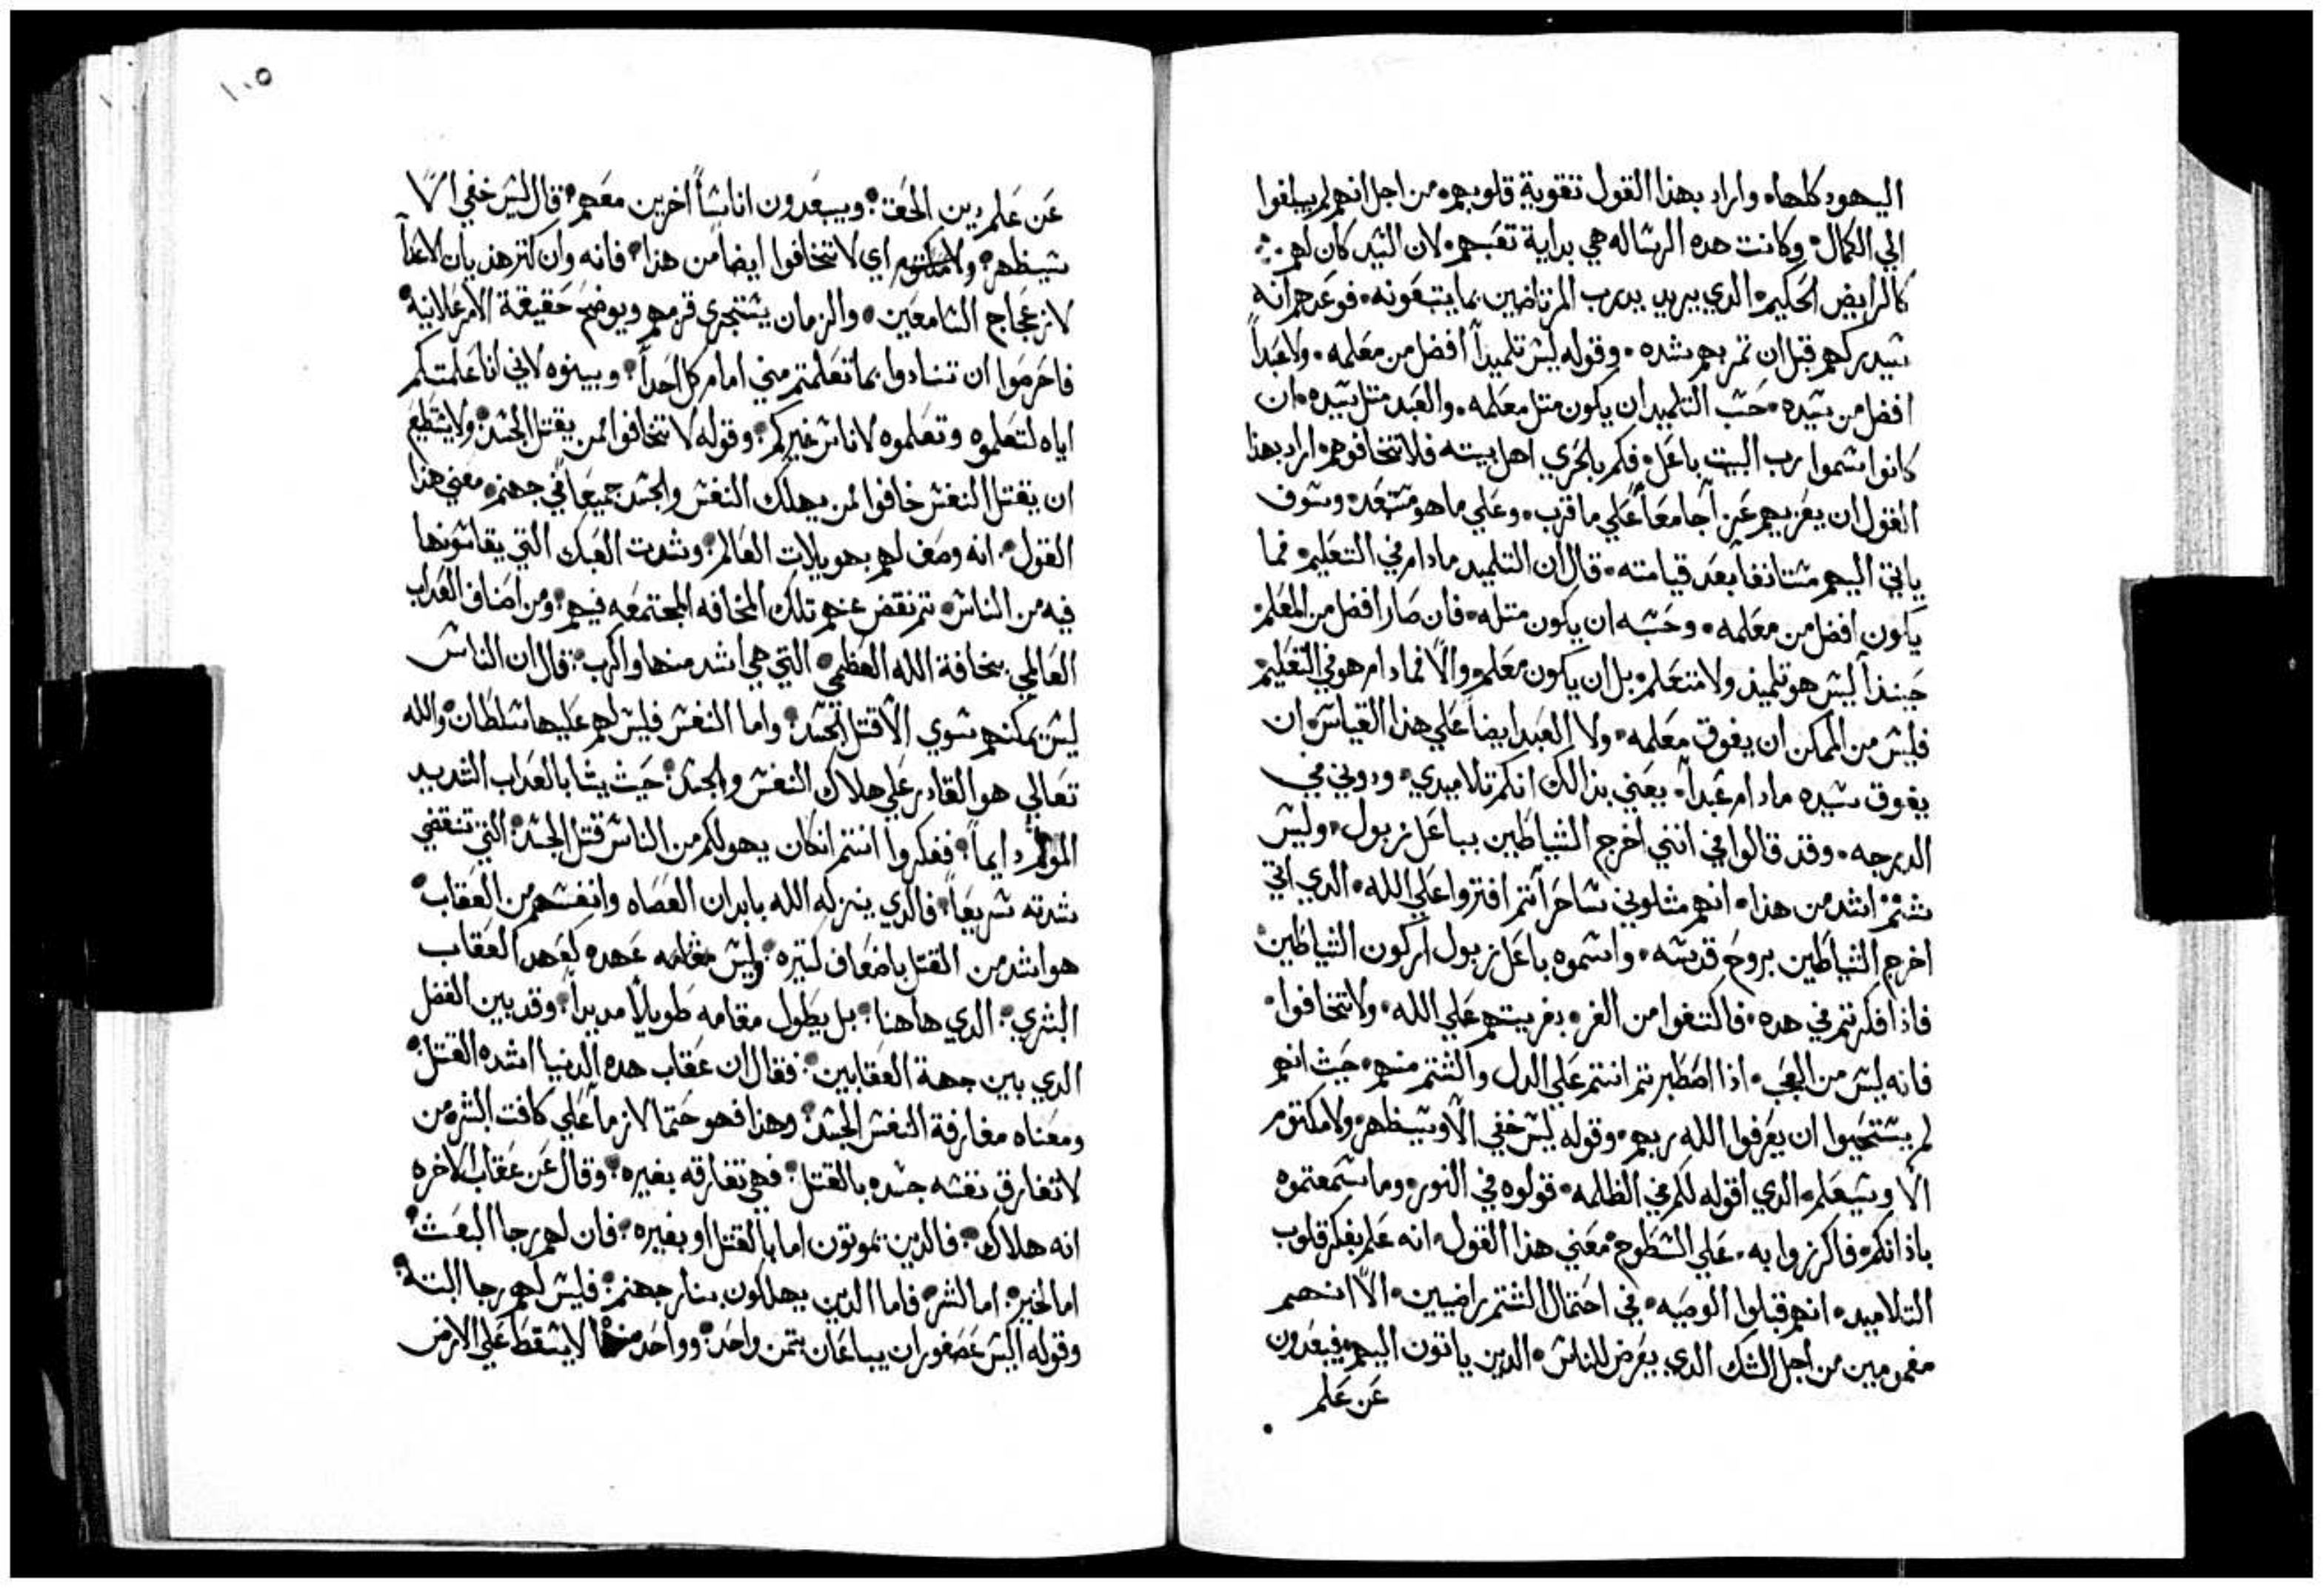 اليهود كلها. واراد بهذا القول تقوية قلوبهم. من اجل انهم لم يبلغوا
الي الكمال. وكانت هده الرساله هي بداية تعبهم. لان السيد كان لهم.
كالرايض الحكيم. الدي يريد يدرب المرتاضين بما يتبعونه. فوعدهم انه
سيدركهم قبل ان تمر بهم شده. وقوله ليس تلميداً افضل من معلمه. ولا عبداً
افضل من سيده. حسب التلميد ان يكون متل معلمه. والعبد متل سيده. ان
كانوا سموا رب البيت باعل. فكم بالحري اهل بيته فلا تخافوهم. اراد بهذا
القول ان يعزيهم عزاً جامعاً علي ما قرب. وعلي ما هو مستعد. وسوف
ياتي اليهم مستانفا بعد قيامته. قال ان التلميد مادام في التعليم فما
يكون افضل من معلمه. وحسبه ان يكون متله. فان صار افضل من المعلم.
حينذاً ليس هو تلميذ ولا متعلم. بل ان يكون معلم. والا فمادام هو في التعليم
فليس من الممكن ان يفوق معلمه. ولا العبد ايضاً علي هذا القياس. ان
يفوق سيده مادام عبداً. يعني بذالك انكم تلاميدي. ودوني في
الدرجه. وقد قالوا في انني اخرج الشياطين بباعل زبول. وليس
شتم اشد من هذا. انهم متلوني ساحراً تم افتروا علي الله. الدي اني
اخرج الشياطين بروح قدسه. واسموه باعل زبول اركون الشياطين.
فاذا فكرتم في هده. فاكتفوا من الغر. بفريتهم علي الله. ولا تخافوا.
فانه ليس من العجب. اذا اصطبرتم انتم علي الدل والشتم منهم. حيث انهم
لم يستحيوا ان يعرفوا الله ربهم. وقوله ليس خفي الا وسيظهر. ولا مكتوم
الا وسيعلم. الدي اقوله لكم في الظلمه. قولوه في النور. وما سمعتموه
باذانكم. فاكرزوا به. علي السطوح. معني هذا القول. انه علم بفكر قلوب
التلاميد. انهم قبلوا الوصيه. في احتمال الشتم راضيين. الا انهم
مغمومين من اجل الشك الدي يعرض للناس. الدين ياتون اليهم. فيبعدون
عن علم
١٠٥
عن علم دين الحق. ويبعدون اناساً اخرين معهم. قال ليس خفي الا
سيظهر. ولا مكتوم اي لا تخافوا ايضا من هذا. فانه وان كتر هذيان الاعداً
لازعجاج السامعين. والزمان يستجري قرمهم ويوضح حقيقة الامر علانية.
فاحرصوا ان تنادوا بما تعلمتم مني امام كل احداً. وبينوه لاني انا علمتكم
اياه لتعلموه وتعلموه لاناس غيركم. وقوله لا تخافوا لمن يقتل الجسد. ولا يستطيع
ان يقتل النفس خافوا لمن يهلك النفس والجسد جميعاً في جهنم. معني هذا
القول. انه وصف لهم بهويلات العالم. وشدت التي يقاسونها
فيه من الناس. تم نقض عنهم تلك المخافه المجتمعه فيهم. ومن اصناف العداب
العالمي. بمخافة الله العظمي. التي هي اشد منها واكرب. قال ان الناس
ليس يمكنهم سوي الا قتل الجسد. واما النفس فليس لهم عليها سلطان. والله
تعالي هو القادر علي هلاك النفس والجسد. حيث يشا بالعداب الشديد
المولم دايماً. ففكروا انتم ان كان يهولكم من الناس قتل الجسد. التي تنقضي
شدته سريعاً. فالدي ينزله الله بابدان العصاه وانفسهم من العقاب.
هو اشد من القتل باضعاف كتيره. وليس مقامه عهده كعهد العقاب
البشري. الدي هاهنا. بل يطول مقامه طويلاً مديداً. وقد بين الفضل
الدي بين جهة العقابين. فقال ان عقاب هده الدنيا اشده القتل.
ومعناه مفارقة النفس الجسد. وهذا فهو حتما لازماً علي كافت البشر. من
لا تفارق نفسه جسده بالقتل. فهي تفارقه بغيره. وقال عن عقاب الاخره
انه هلاك. فالدين يموتون اما بالقتل او بغيره. فان لهم رجا البعث.
اما لخير. اما لشر. فاما الدين يهلكون بنار جهنم. فليس لهم رجا البتة.
وقوله اليس عصفوران يباعان بتمن واحد. وواحد منهما لا يسقط علي الارض